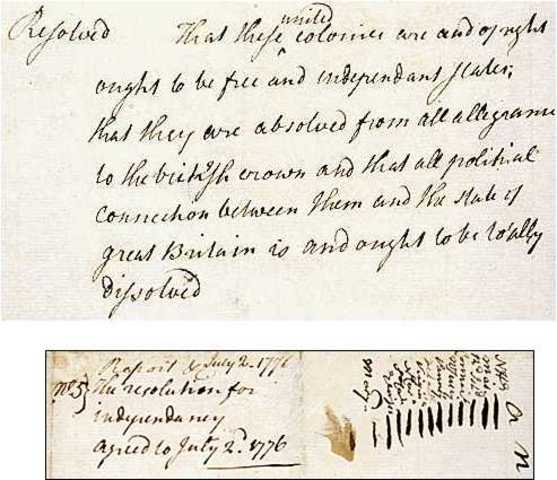 Resolved That these united colonies are and of right
ought to be free and independant states;
that they are absolved from all allegiance
to the british crown and that all political
connection between them and the state of
great Britain is and ought to be totally
dissolved
Report & July 2. 1776
No 5} The resolution for
independancy
agreed to July 2d. 1776